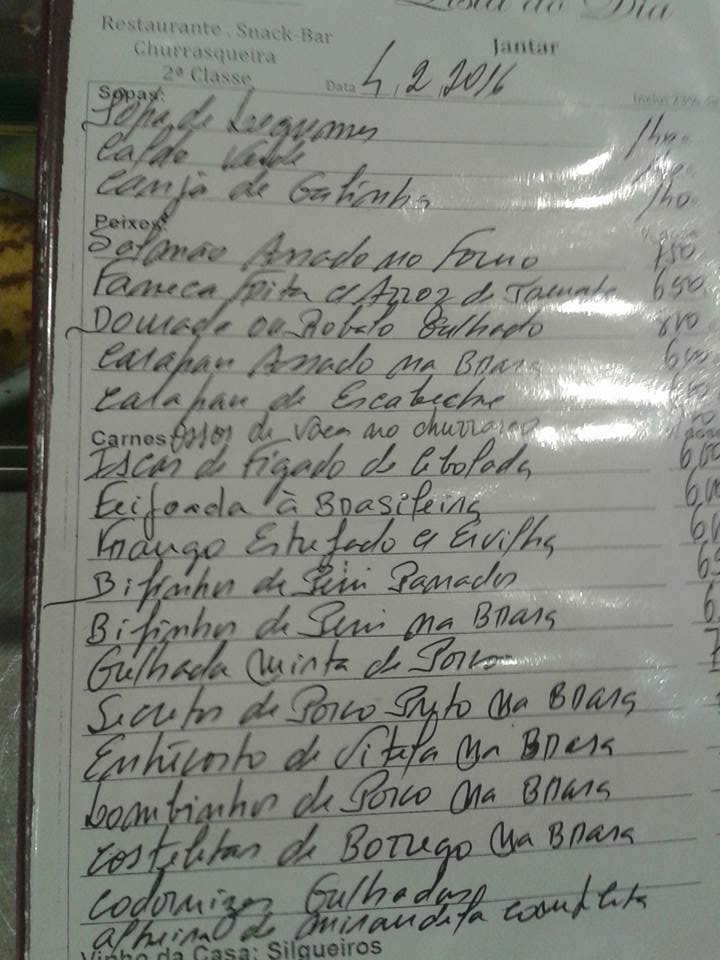 Lista do Dia
Restaurante . Snack-Bar
Churrasqueira
2ª Classe
Jantar
Data 4,2,2016
Sopas:
Sopa de Legumes 140
Caldo Verde
Canja de Galinha 140
Peixes:
Salmão Assado no Forno 750
Faneca Frita c/ Arroz de Tomate 650
Dourada ou Robalo Grelhado
Carapau Assado na Brasa
Carapau de Escabeche
Carnes: Ossos de Vaca no churrasco
Iscas de Figado de Cebolada
Feijoada à Brasileira
Frango Estufado c/ Ervilha
Bifinhos de Peru Panados
Bifinhos de Peru na Brasa
Grelhada Mista de Porco
Secretos de Porco Preto na Brasa
Entrecosto de Vitela na Brasa
Lombinhos de Porco na Brasa
Costeletas de Borrego na Brasa
Codornizes Grelhadas
Alheira de Mirandela completa
Vinho da Casa: Silgueiros